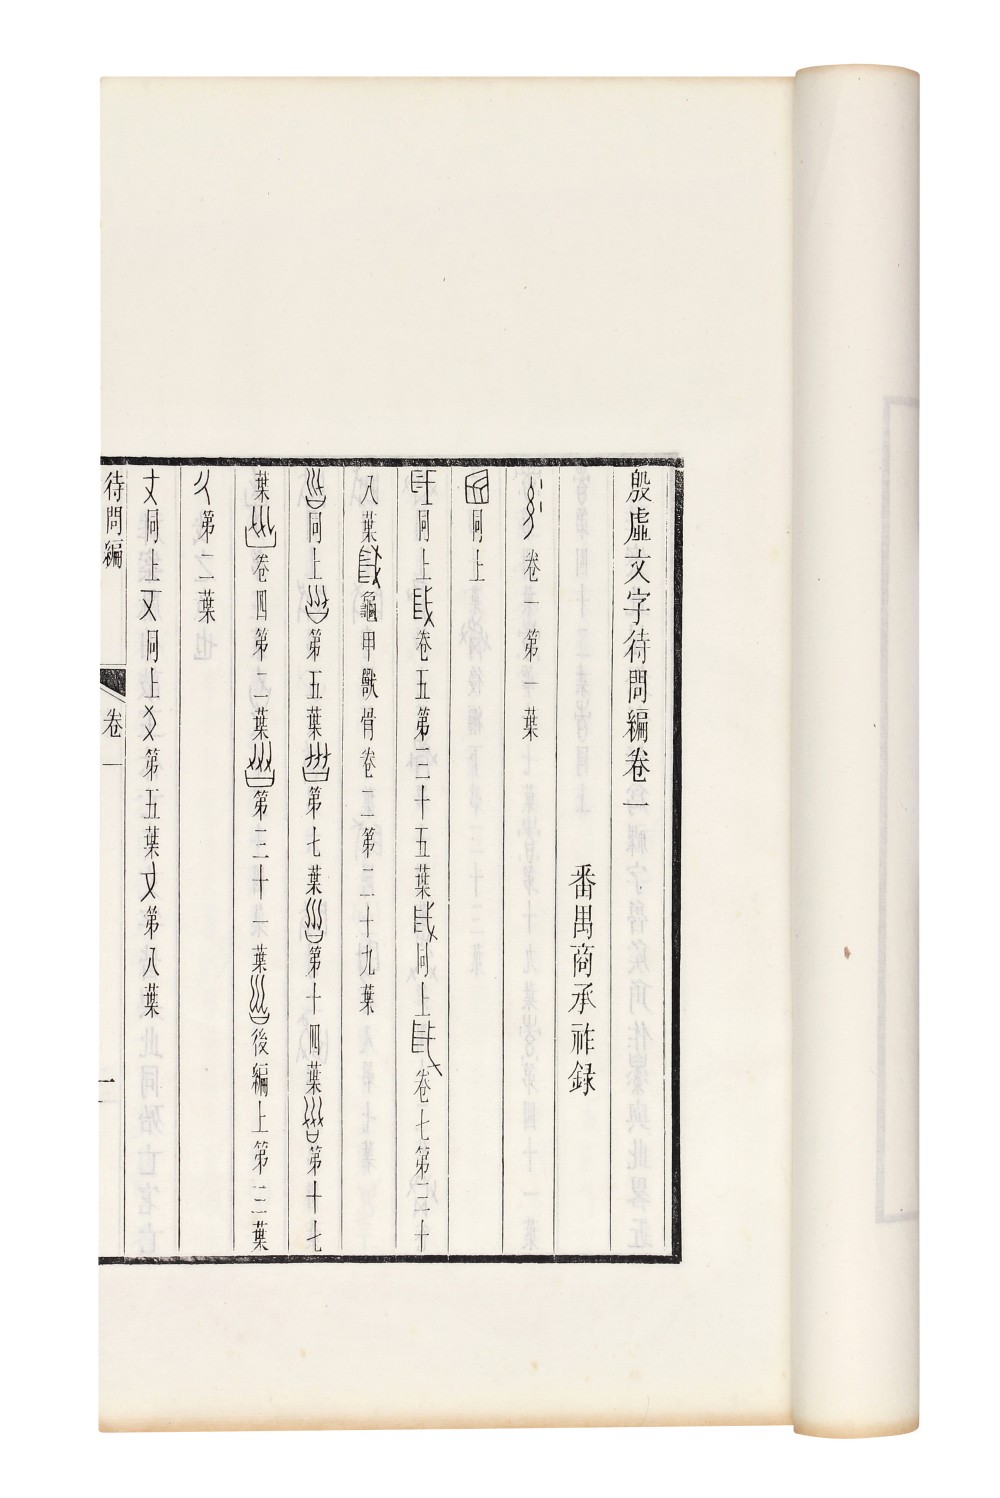 殷虛文字待問編卷一
番禺商承祚錄
卷一第一葉
同上
同上 卷五第三十五葉 同上 卷七第三十
八葉 龜甲獸骨卷二第二十九葉
同上 第五葉 第七葉 第十四葉 第十七
葉 卷四第二葉 第三十一葉 後編上第三葉
第二葉
同上 同上 第五葉 第八葉
待問編 卷一 一